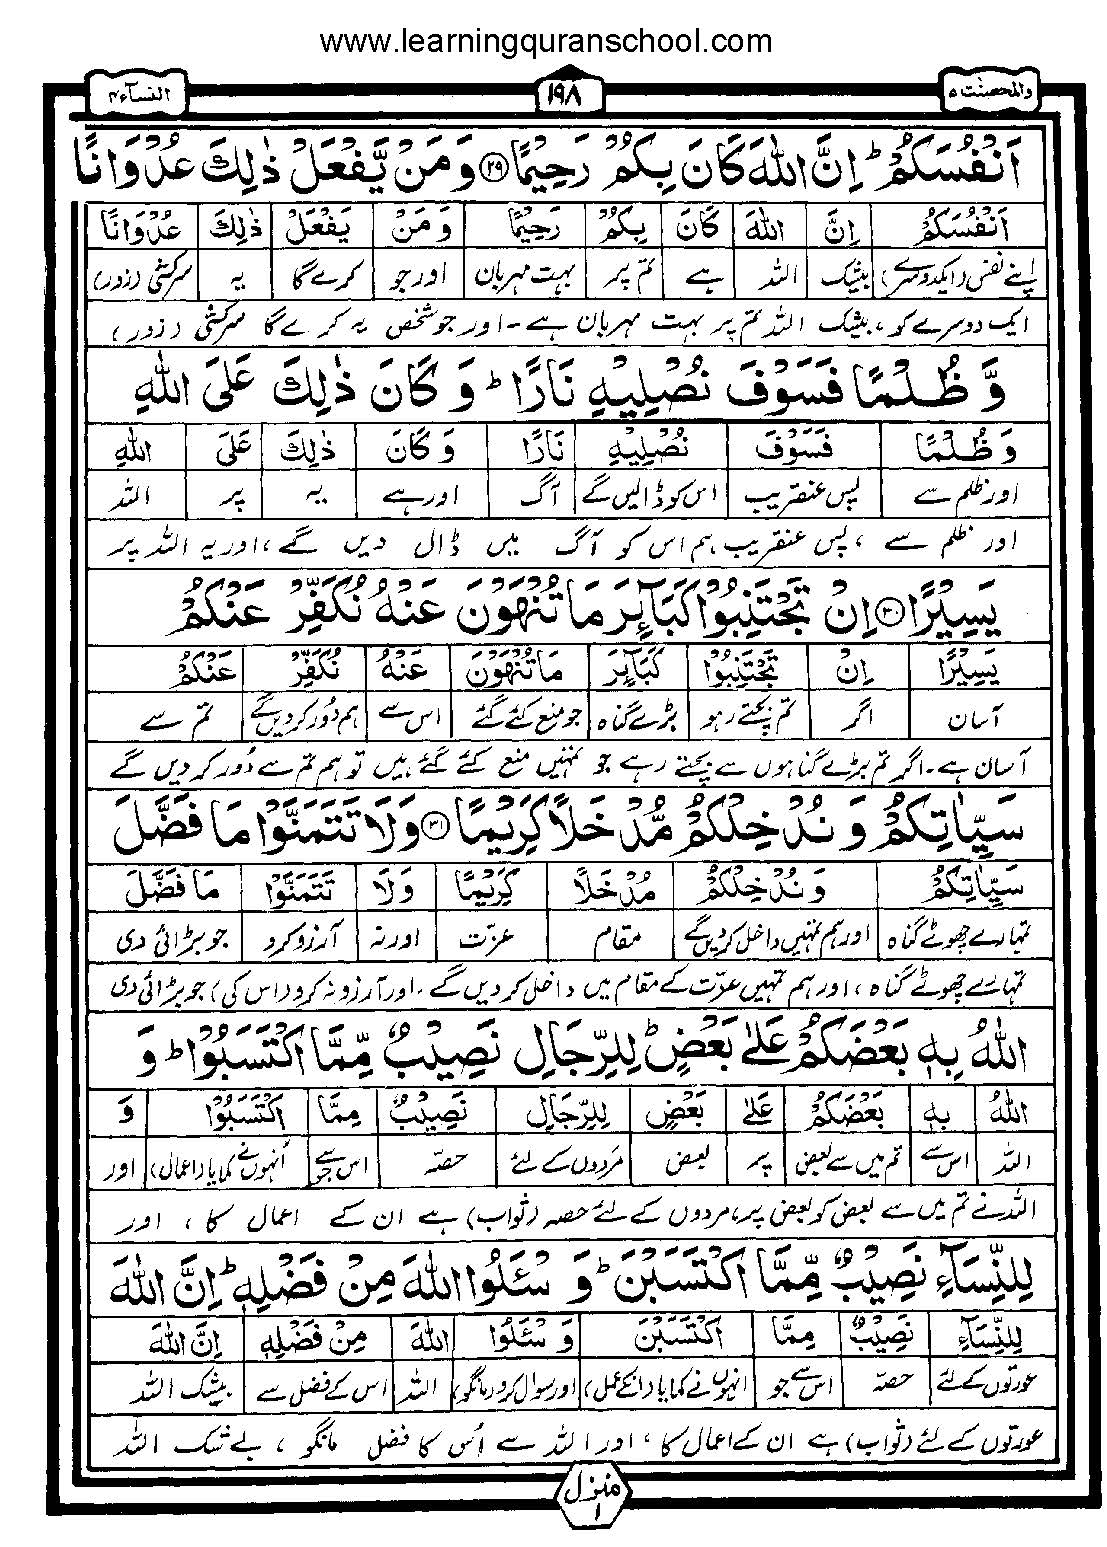 www.learningquranschool.com
والمحصنت ۵ ۱۹۸ النسآء ۴
اَنْفُسَكُمْ ؕ اِنَّ اللّٰهَ كَانَ بِكُمْ رَحِيْمًا ﴿۲۹﴾ وَ مَنْ يَّفْعَلْ ذٰلِكَ عُدْوَانًا
اَنْفُسَكُمْ اِنَّ اللّٰهَ كَانَ بِكُمْ رَحِيْمًا وَ مَنْ يَفْعَلْ ذٰلِكَ عُدْوَانًا
اپنے نفس (ایکدوسرے) بیشک اللہ ہے تم پر بہت مہربان اور جو کرے گا یہ سرکشی (زور)
ایک دوسرے کو، بیشک اللہ تم پر بہت مہربان ہے۔ اور جو شخص یہ کرے گا سرکشی (زور)
وَّ ظُلْمًا فَسَوْفَ نُصْلِيْهِ نَارًا ؕ وَ كَانَ ذٰلِكَ عَلَى اللّٰهِ
وَ ظُلْمًا فَسَوْفَ نُصْلِيْهِ نَارًا وَ كَانَ ذٰلِكَ عَلَى اللّٰهِ
اور ظلم سے پس عنقریب اس کو ڈالیں گے آگ اور ہے یہ پر اللہ
اور ظلم سے ، پس عنقریب ہم اس کو آگ میں ڈال دیں گے ، اور یہ اللہ پر
يَسِيْرًا ﴿۳۰﴾ اِنْ تَجْتَنِبُوْا كَبَآئِرَ مَا تُنْهَوْنَ عَنْهُ نُكَفِّرْ عَنْكُمْ
يَسِيْرًا اِنْ تَجْتَنِبُوْا كَبَآئِرَ مَا تُنْهَوْنَ عَنْهُ نُكَفِّرْ عَنْكُمْ
آسان اگر تم بچتے رہو بڑے گناہ جو منع کئے گئے اس سے ہم دُور کردیں گے تم سے
آسان ہے۔ اگر تم بڑے گناہوں سے بچتے رہے جو تمہیں منع کئے گئے ہیں تو ہم تم سے دُور کر دیں گے
سَيِّاٰتِكُمْ وَ نُدْخِلْكُمْ مُّدْخَلًا كَرِيْمًا ﴿۳۱﴾ وَلَا تَتَمَنَّوْا مَا فَضَّلَ
سَيِّاٰتِكُمْ وَ نُدْخِلْكُمْ مُدْخَلًا كَرِيْمًا وَلَا تَتَمَنَّوْا مَا فَضَّلَ
تمہارے چھوٹے گناہ اور ہم تمہیں داخل کردیں گے مقام عزّت اور نہ آرزو کرو جو بڑائی دی
تمہارے چھوٹے گناہ ، اور ہم تمہیں عزّت کے مقام میں داخل کر دیں گے ۔ اور آرزو نہ کرو (اس کی) جو بڑائی دی
اللّٰهُ بِهٖ بَعْضَكُمْ عَلٰى بَعْضٍ ؕ لِلرِّجَالِ نَصِيْبٌ مِّمَّا اكْتَسَبُوْا ؕ وَ
اللّٰهُ بِهٖ بَعْضَكُمْ عَلٰى بَعْضٍ لِلرِّجَالِ نَصِيْبٌ مِّمَّا اكْتَسَبُوْا وَ
اللہ اس سے تم میں سے بعض پر بعض مَردوں کے لئے حصّہ اس سے جو اُنہوں نے کمایا (اعمال) اور
اللہ نے تم میں سے بعض کو بعض پر، مردوں کے لئے حصہ (ثواب) ہے ان کے اعمال کا ، اور
لِلنِّسَآءِ نَصِيْبٌ مِّمَّا اكْتَسَبْنَ ؕ وَ سْئَلُوا اللّٰهَ مِنْ فَضْلِهٖ ؕ اِنَّ اللّٰهَ
لِلنِّسَآءِ نَصِيْبٌ مِمَّا اكْتَسَبْنَ وَ سْئَلُوْا اللّٰهَ مِنْ فَضْلِهٖ اِنَّ اللّٰهَ
عورتوں کے لئے حصّہ اس سے جو انہوں نے کمایا (انکے عمل) اور سوال کرو (مانگو) اللہ اس کے فضل سے بیشک اللہ
عورتوں کے لئے (ثواب) ہے ان کے اعمال کا ، اور اللہ سے اُس کا فضل مانگو ، بے شک اللہ
منزل ۱